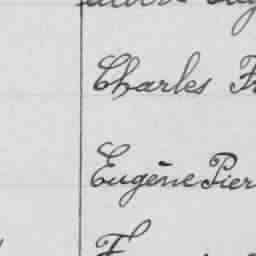 Charles F
Eugène Pier
F